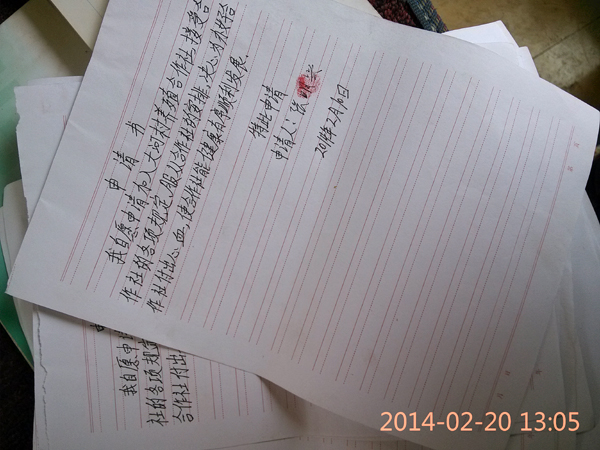 申请书
我自愿申请加入大河村养殖合作社,接受合
作社的各项规定,服从合作社的安排,决心为办好合
作社付出心血,使合作社能健康有序顺利发展。
特此申请
申请人:张
2014年2月10日
我自愿申
社的各项规定
合作社付出
2014-02-20 13:05